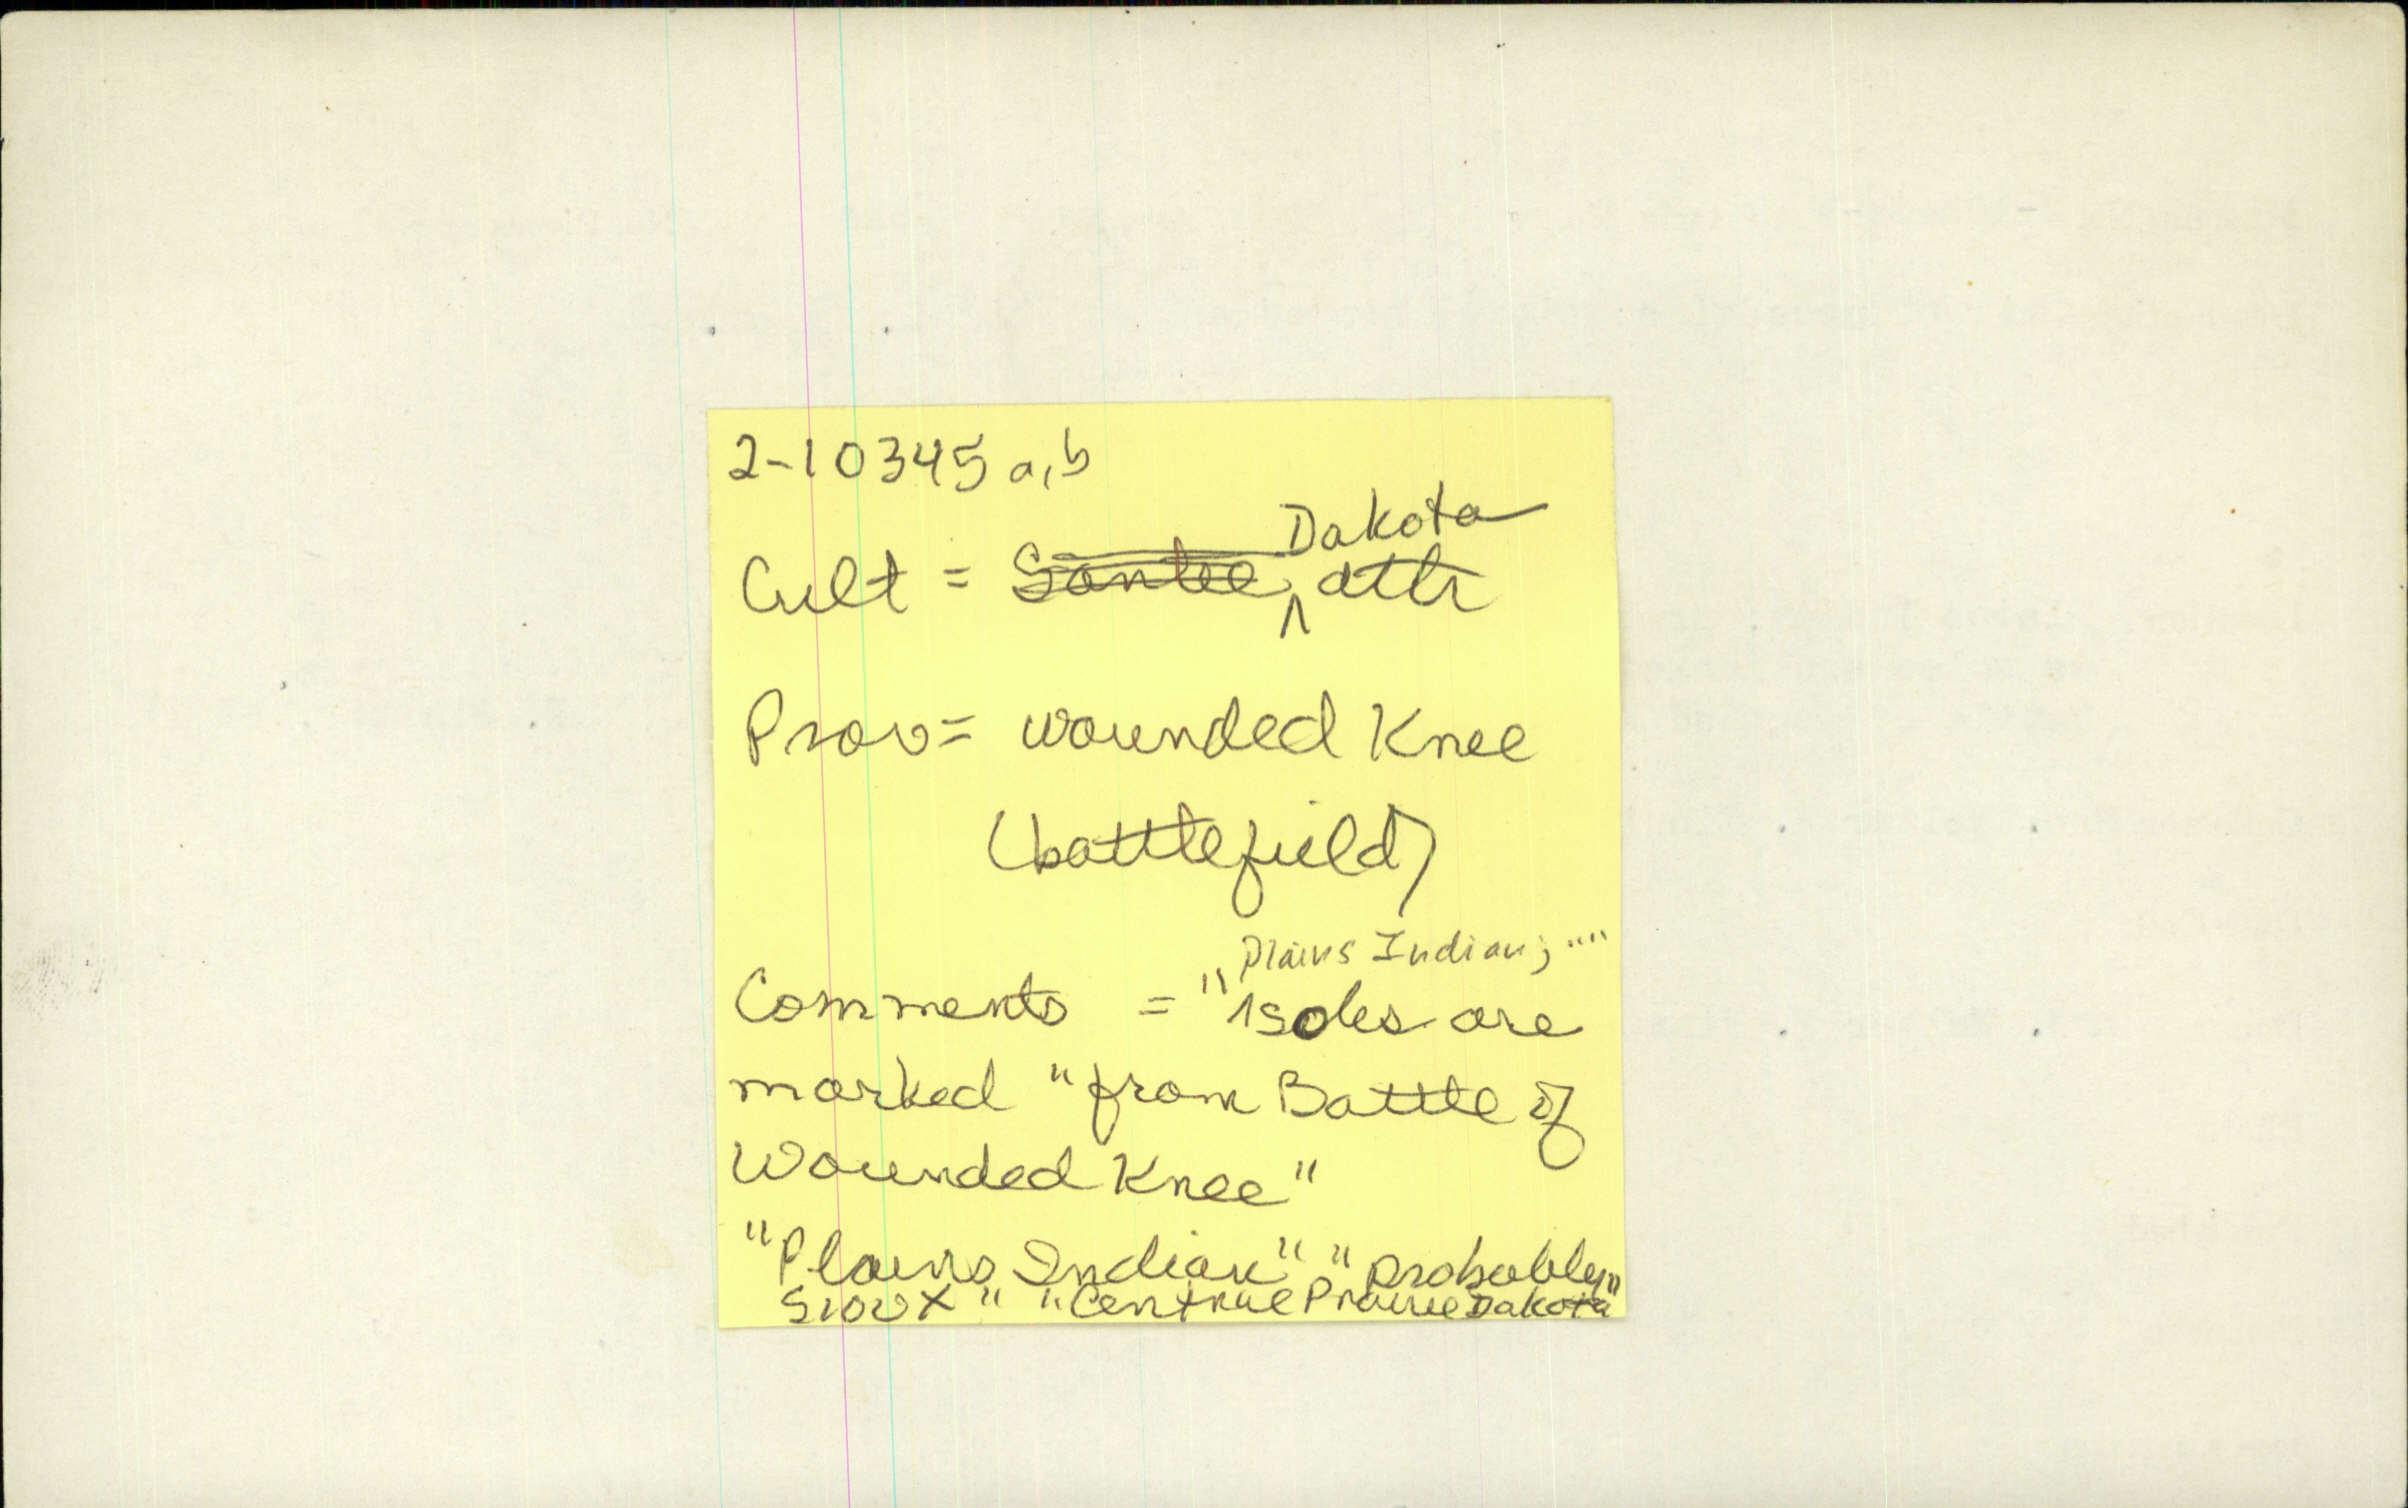 2-10345 a,b
Cult = Santee, Dakota attr
Prov = Wounded Knee
(battlefield)
Comments = "Plains Indian; "" soles are
marked "from Battle of
Wounded Knee"
"Plains Indian" "probably
Sioux" "Central Prairie Dakota"